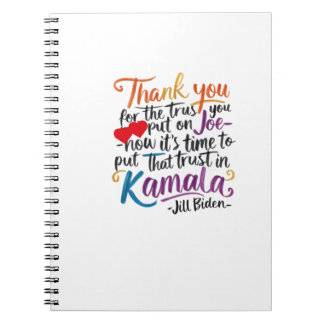 Thank you
for the trust you
put on Joe-
-now it's time to
put that trust in
Kamala
-Jill Biden-